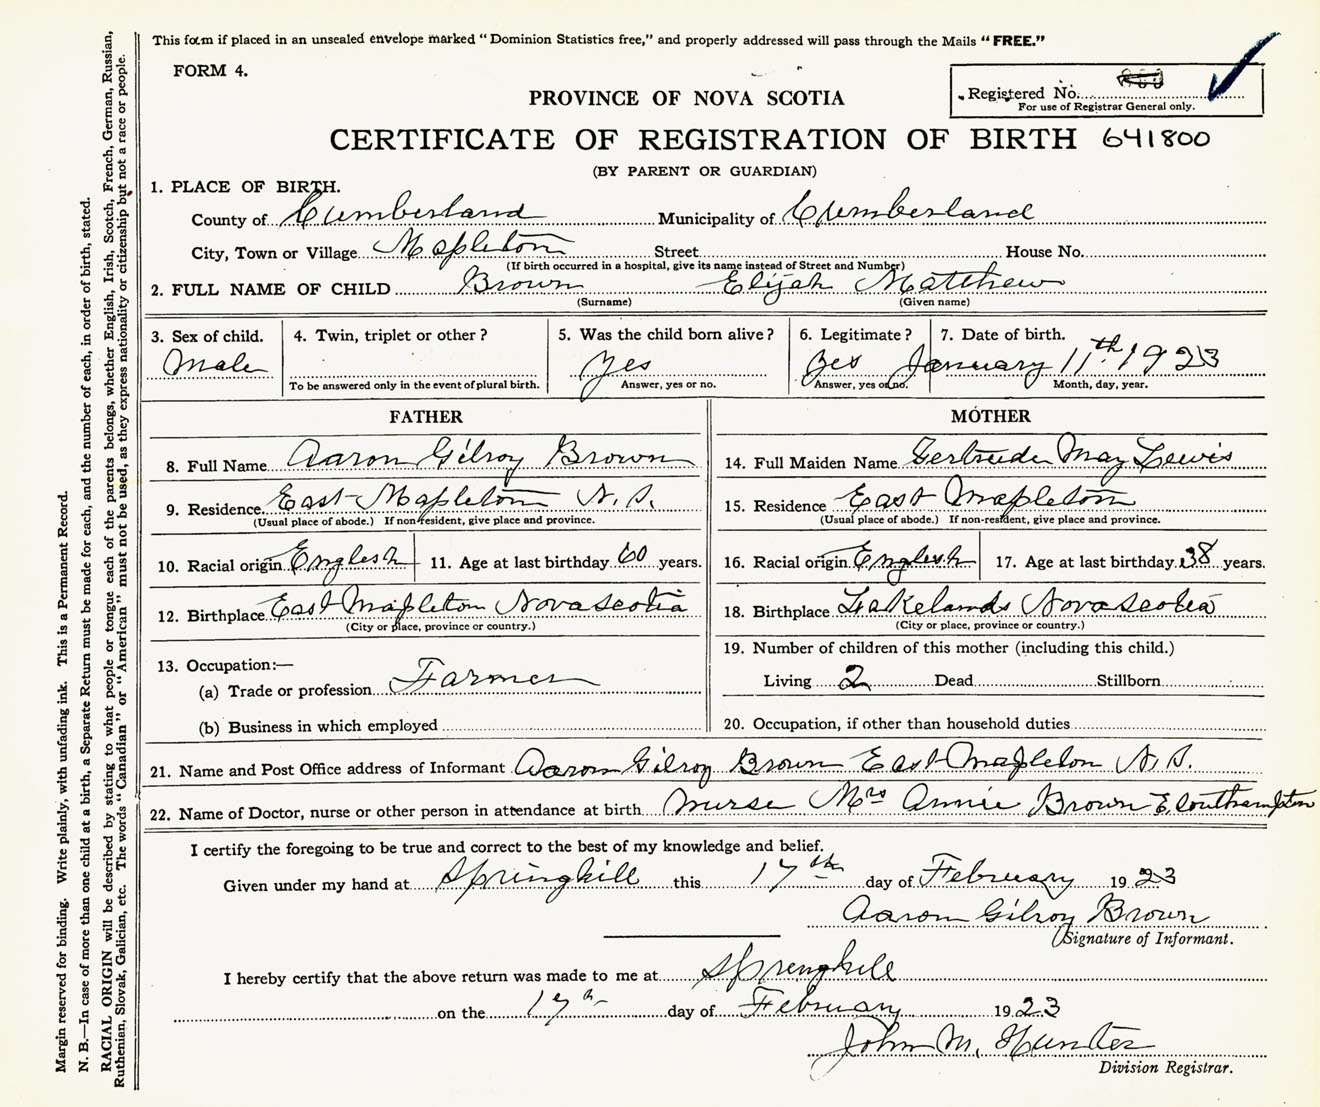 This form if placed in an unsealed envelope marked "Dominion Statistics free," and properly addressed will pass through the Mails "FREE."
FORM 4.
Registered No.
For use of Registrar General only.
PROVINCE OF NOVA SCOTIA
CERTIFICATE OF REGISTRATION OF BIRTH 641800
(BY PARENT OR GUARDIAN)
1. PLACE OF BIRTH.
County of Cumberland Municipality of Cumberland
City, Town or Village Mapleton Street House No.
(If birth occurred in a hospital, give its name instead of Street and Number)
2. FULL NAME OF CHILD Brown Elijah Matthew
(Surname) (Given name)
3. Sex of child. 4. Twin, triplet or other? 5. Was the child born alive? 6. Legitimate? 7. Date of birth.
Male yes yes January 11th 1923
To be answered only in the event of plural birth. Answer, yes or no. Answer, yes or no. Month, day, year.
FATHER MOTHER
8. Full Name Aaron Gilroy Brown 14. Full Maiden Name Gertrude May Lewis
9. Residence. East Mapleton N.S. 15. Residence East Mapleton
(Usual place of abode.) If non-resident, give place and province. (Usual place of abode.) If non-resident, give place and province.
10. Racial origin English 11. Age at last birthday 60 years. 16. Racial origin English 17. Age at last birthday 38 years.
12. Birthplace East Mapleton Nova Scotia 18. Birthplace Lakelands Nova Scotia
(City or place, province or country.) (City or place, province or country.)
13. Occupation:— 19. Number of children of this mother (including this child.)
(a) Trade or profession Farmer Living 2 Dead Stillborn
(b) Business in which employed 20. Occupation, if other than household duties
21. Name and Post Office address of Informant Aaron Gilroy Brown East Mapleton N.S.
22. Name of Doctor, nurse or other person in attendance at birth Nurse Mrs Annie Brown E. Southampton
I certify the foregoing to be true and correct to the best of my knowledge and belief.
Given under my hand at Springhill this 17th day of February 1923
Aaron Gilroy Brown
Signature of Informant.
I hereby certify that the above return was made to me at Springhill
on the 17th day of February 1923
John M. Hunter
Division Registrar.
Margin reserved for binding. Write plainly, with unfading ink. This is a Permanent Record.
N. B.—In case of more than one child at a birth, a Separate Return must be made for each, and the number of each, in order of birth, stated.
RACIAL ORIGIN will be described by stating to what people or tongue each of the parents belongs, whether English, Irish, Scotch, French, German, Russian,
Ruthenian, Slovak, Galician, etc. The words "Canadian" or "American" must not be used, as they express nationality or citizenship but not a race or people.